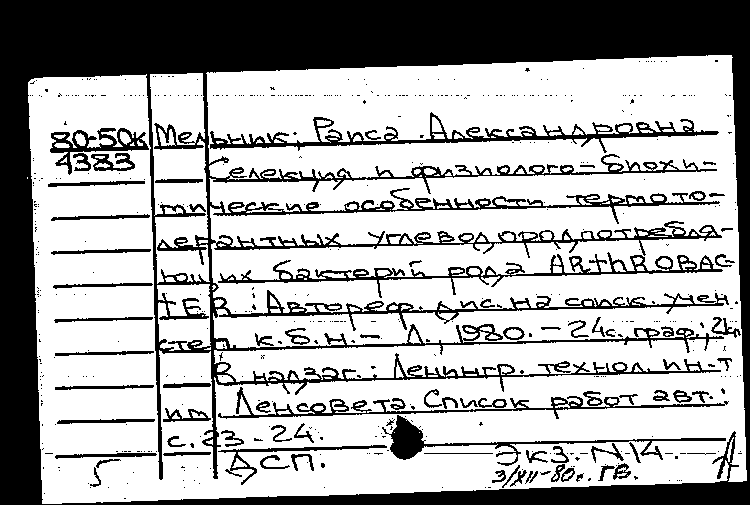 80-50к Мельник, Раиса Александровна
4383 Селекция и физиолого-биохи-
мические особенности термото-
лерантных углеводородпотребля-
ющих бактерий рода ARthROBAC-
tER: Автореф. дис. на соиск. учен.
степ. к.б.н. - Л., 1980. - 24с., граф.;
В надзаг.: Ленингр. технол. ин-т
им. Ленсовета. Список работ авт.:
с. 23-24.
ДСП. Экз. N 14.
3/XII-80г. ГВ.